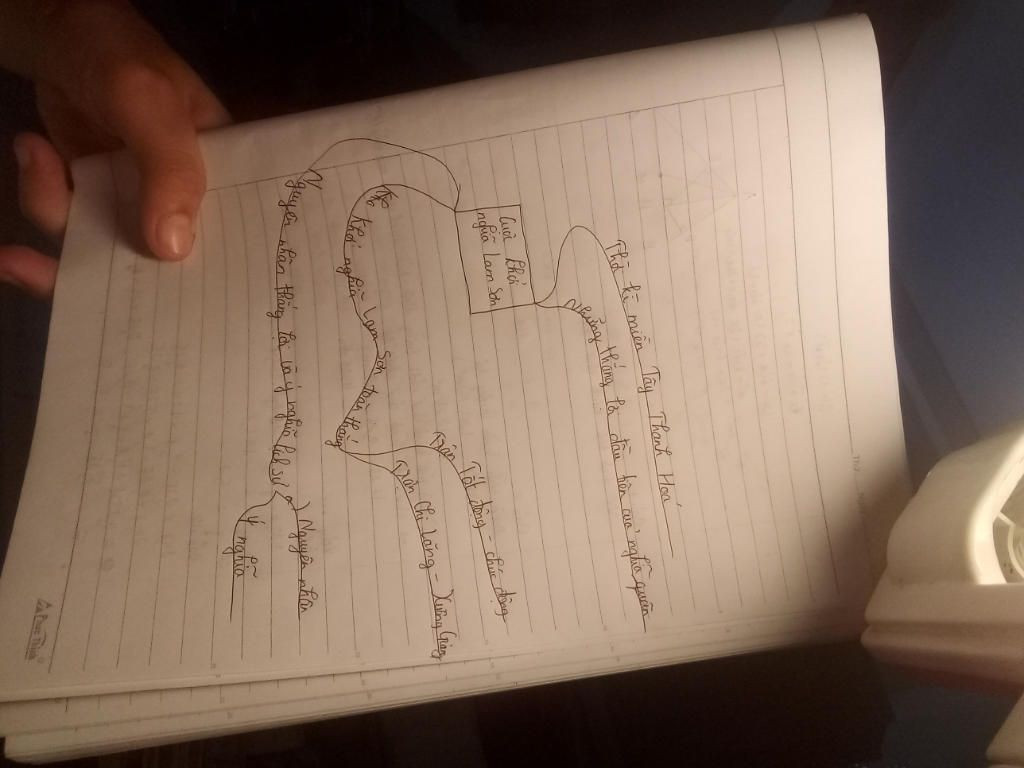 Cuộc khởi
nghĩa Lam Sơn
Thời kì miền Tây Thanh Hoá
Những thắng lợi đầu tiên của nghĩa quân
Khởi nghĩa Lam Sơn toàn thắng
Trận Tốt động - chúc động
Trận Chi Lăng - Xương Giang
Nguyên nhân thắng lợi và ý nghĩa lịch sử
a) Nguyên nhân
ý nghĩa